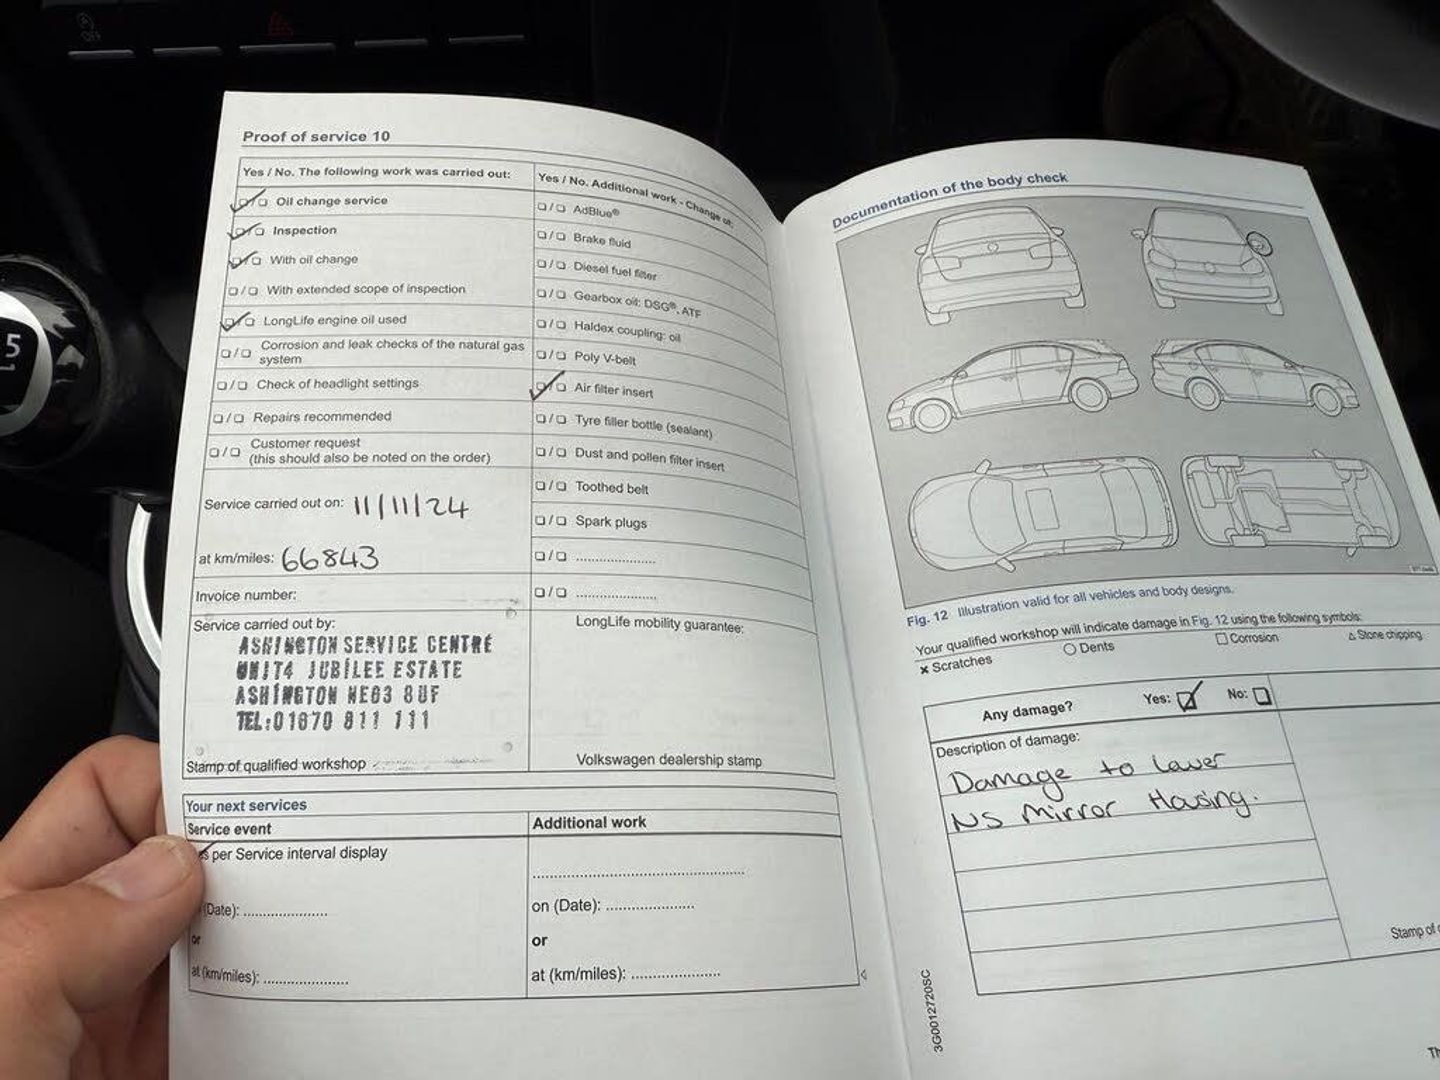 OFF
5
Proof of service 10
Yes / No. The following work was carried out:
Oil change service
Inspection
With oil change
With extended scope of inspection
LongLife engine oil used
Corrosion and leak checks of the natural gas
system
Check of headlight settings
Repairs recommended
Customer request
(this should also be noted on the order)
Service carried out on: 11/11/24
at km/miles: 66843
Invoice number:
Service carried out by:
ASHINGTON SERVICE CENTRE
UNIT4 JUBILEE ESTATE
ASHINGTON NE63 8UF
TEL:01670 811 111
Stamp of qualified workshop
Yes / No. Additional work - Change of:
AdBlue®
Brake fluid
Diesel fuel filter
Gearbox oil: DSG®, ATF
Haldex coupling: oil
Poly V-belt
Air filter insert
Tyre filler bottle (sealant)
Dust and pollen filter insert
Toothed belt
Spark plugs
LongLife mobility guarantee:
Volkswagen dealership stamp
Your next services
Service event
per Service interval display
(Date):
or
at (km/miles):
Additional work
on (Date):
or
at (km/miles):
Documentation of the body check
Fig. 12 Illustration valid for all vehicles and body designs.
Your qualified workshop will indicate damage in Fig. 12 using the following symbols:
× Scratches
Dents
Corrosion
Stone chipping
Any damage? Yes: No:
Description of damage:
Damage to Lower
NS Mirror Housing.
Stamp of
3G0012720SC